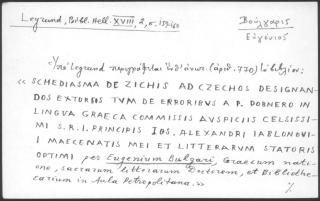 Legrand, Bibl. Hell. XVIII, 2, σ. 159-160
Βούλγαρις
Εὐγένιος
Ὑπὸ Legrand περιγράφεται ὑπ' ἀριθ. 730) τὸ βιβλίον:
« SCHEDIASMA DE ZICHIS AD CZECHOS DESIGNAN-
DOS EXTORSIS TVM DE ERRORIBUS A P. DOBNERO IN
LINGVA GRAECA COMMISSIS AVSPICIIS CELSISSI-
MI S.R.I. PRINCIPIS IOS. ALEXANDRI IABLONOVI-
I MAECENATIS MEI ET LITTERARVM STATORIS
OPTIMI per Eugenium Bulgari, Graecum nati-
one, sacrarum litterarum Doctorem, et Bibliothe-
carium in Aula Petropolitana.»
./.